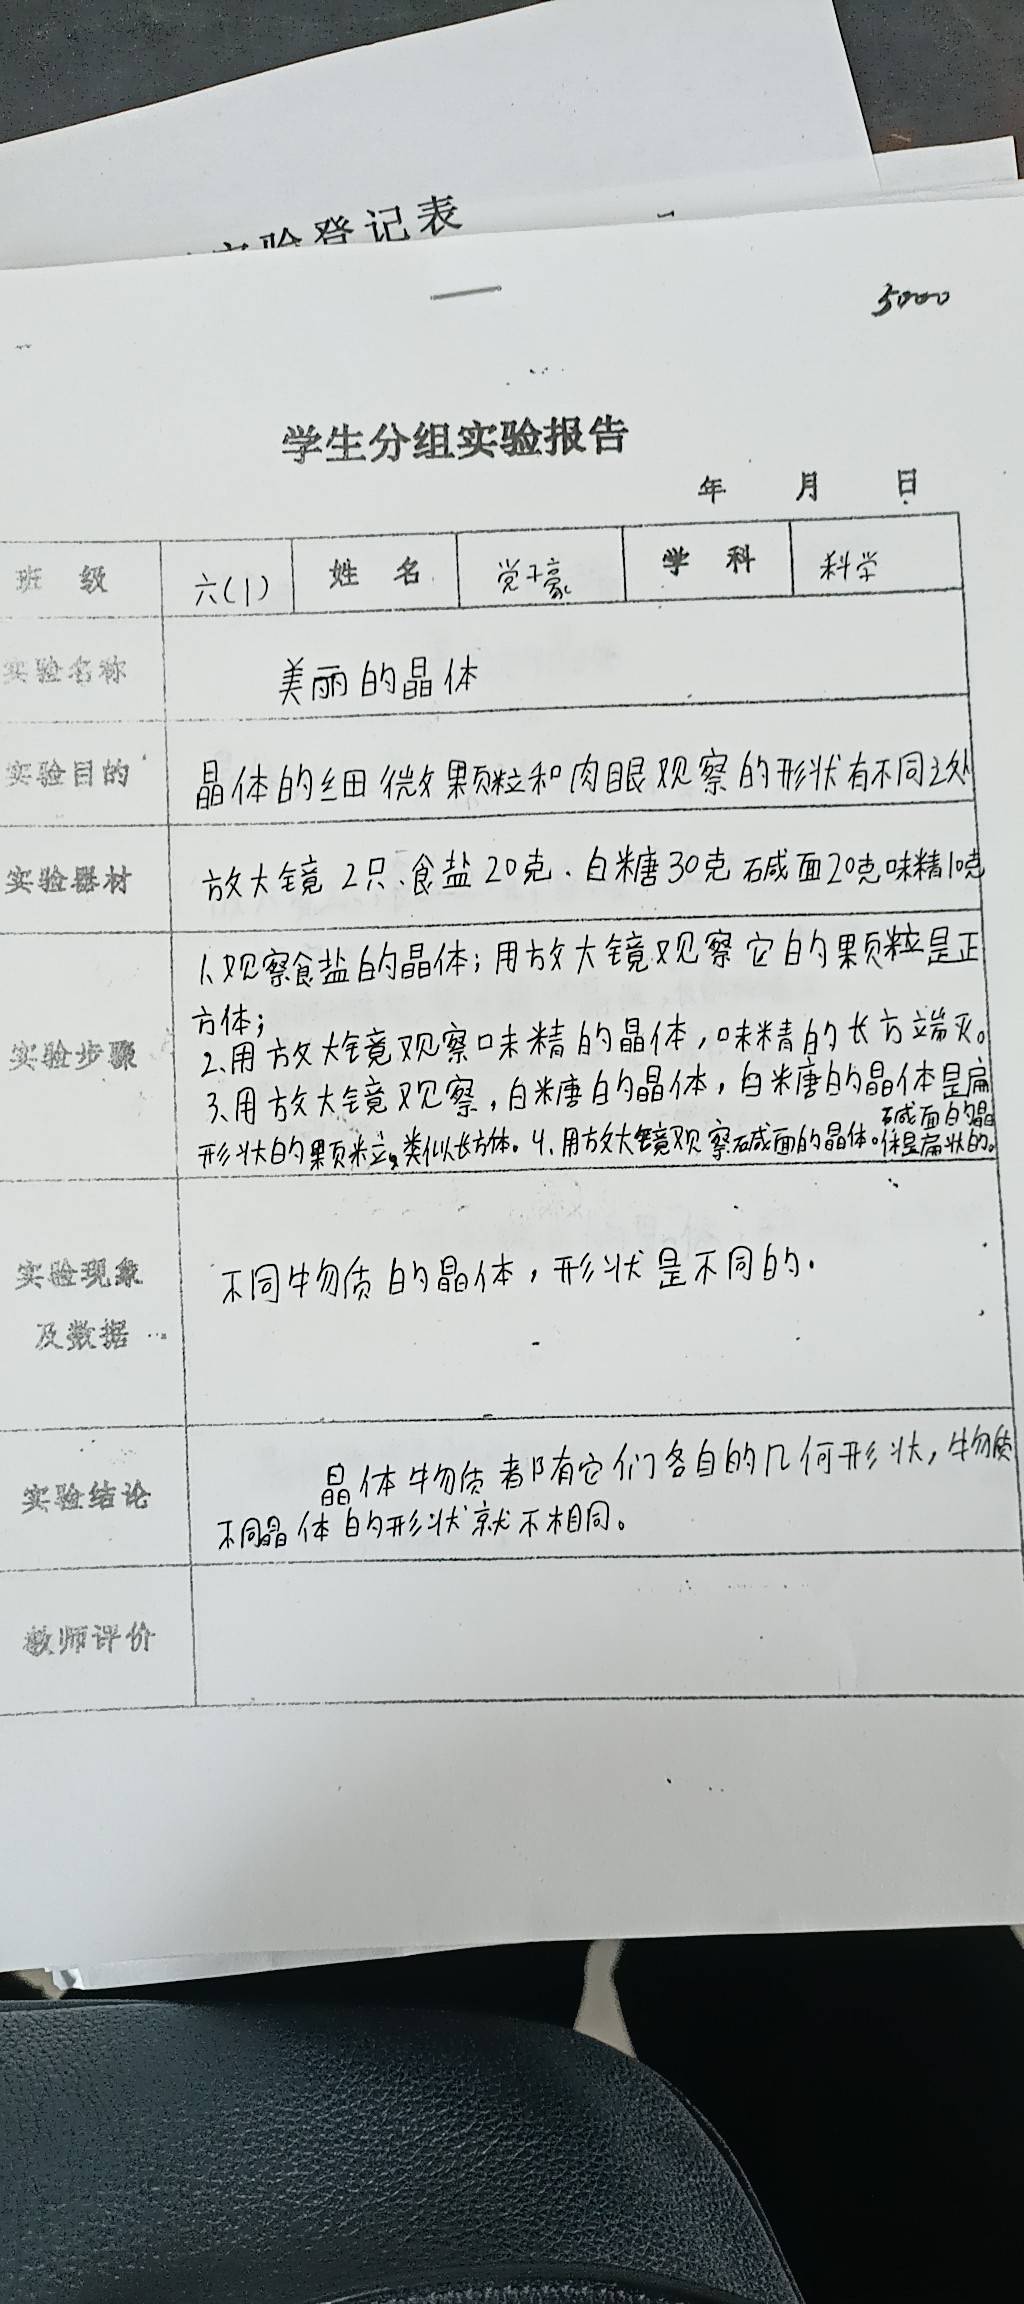 实验登记表
5000
学生分组实验报告
年 月 日
班 级 六(1) 姓 名 党子豪 学 科 科学
实验名称 美丽的晶体
实验目的 晶体的细微颗粒和肉眼观察的形状有不同之处
实验器材 放大镜2只、食盐20克、白糖30克碱面20克味精10克
实验步骤
1、观察食盐的晶体；用放大镜观察它的颗粒是正
方体；
2、用放大镜观察味精的晶体，味精的长方端灭。
3、用放大镜观察，白糖的晶体，白糖的晶体是扁
形状的颗粒，类似长方体。4、用放大镜观察碱面的晶体。碱面的晶
体是扁状的。
实验现象
及数据
不同物质的晶体，形状是不同的．
实验结论
晶体物质都有它们各自的几何形状，物质
不同晶体的形状就不相同。
教师评价